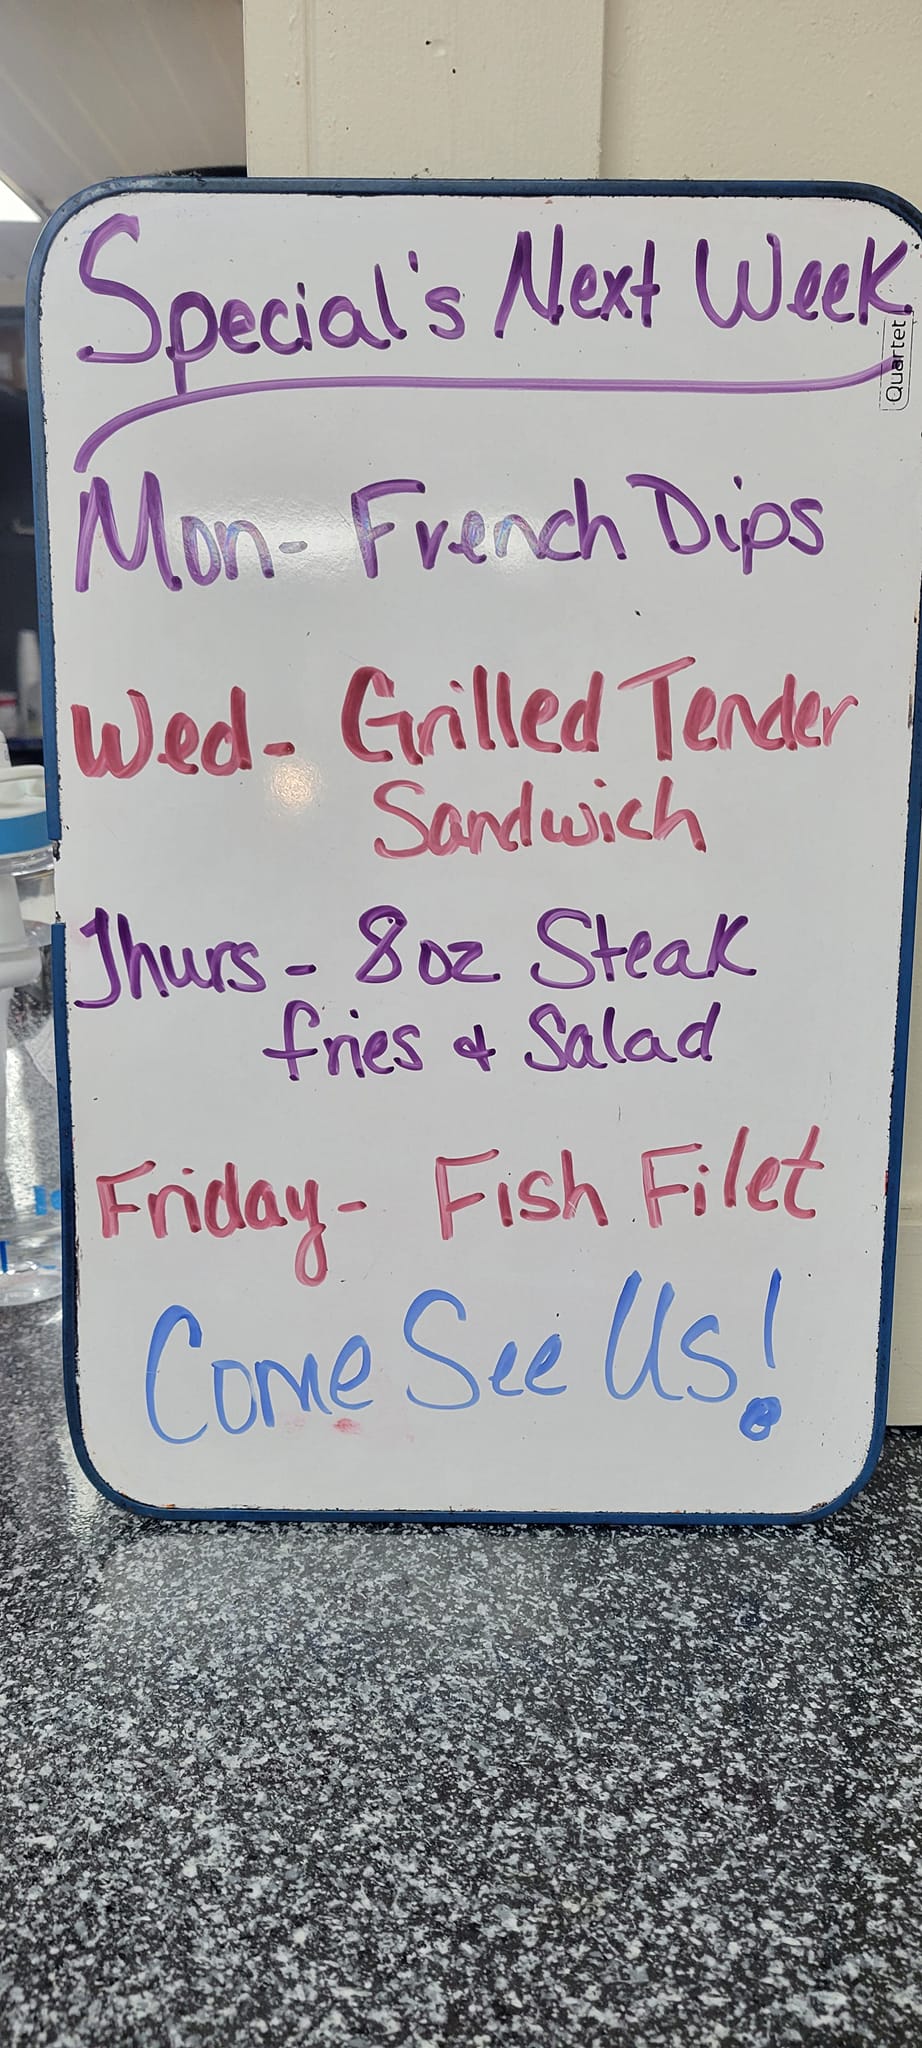 Special's Next Week
Quartet
Mon- French Dips
Wed- Grilled Tender
Sandwich
Thurs- 8oz Steak
fries & Salad
Friday- Fish Filet
Come See Us!